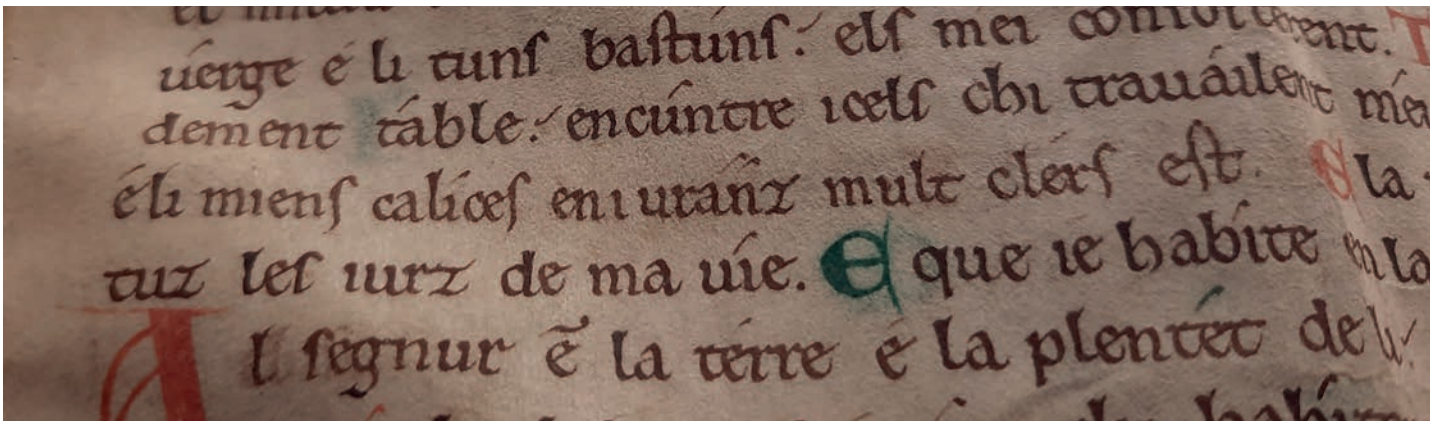 uérge é li tunſ baſtunſ: elſ mei conforterent. T
dement táble: encúntre icelſ chi trauáilent méi
é li mienſ calíceſ eniuranz mult clérſ eſt. E la
tuz leſ iurz de ma uíe. E que ie habíte en la
Al ſegnur ẽ la térre é la plentét de li: